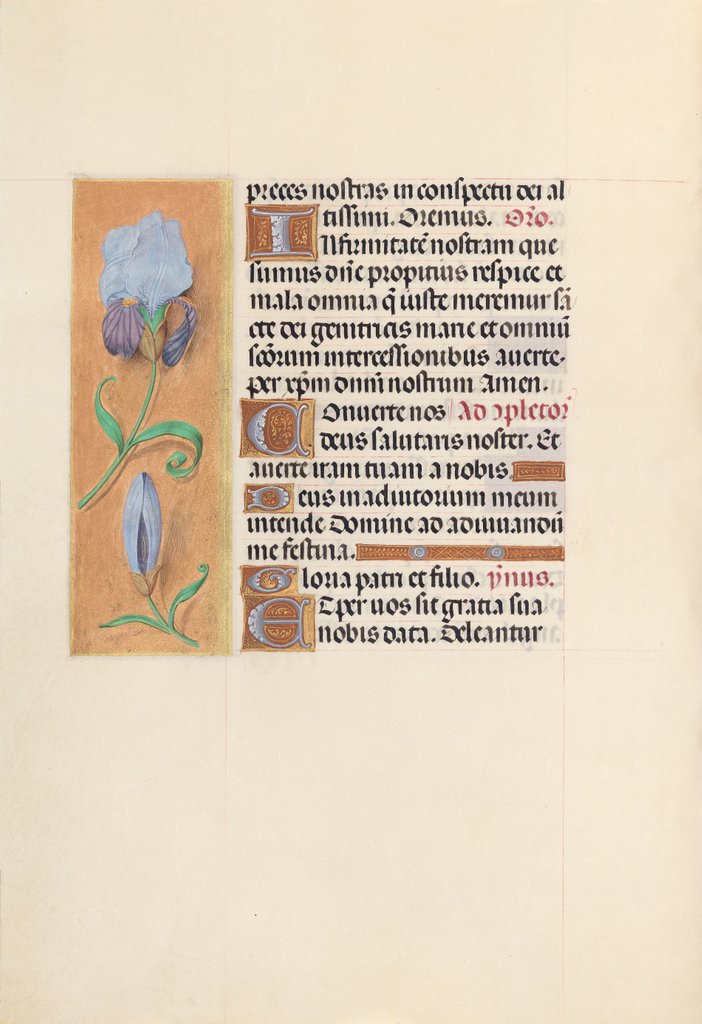 preces nostras in conspectu dei al
tissimi. Oremus. Oro̅.
INfirmitate̅ nostram que
sumus dn̅e propitius respice et
mala omnia q̅ iuste meremur sa̅
cte dei genitricis marie et omniu̅
sc̅o̅rum intercessionibus auerte.
per xp̅m dnm̅ nostrum Amen.
COnuerte nos Ad ↄpletor̅
deus salutaris noster. Et
auerte iram tuam a nobis
Deus in adiutorium meum
intende Domine ad adiuuandu̅
me festina.
Gloria patri et filio. ẏmnus.
ET per uos sit gratia sua
nobis data. Deleantur